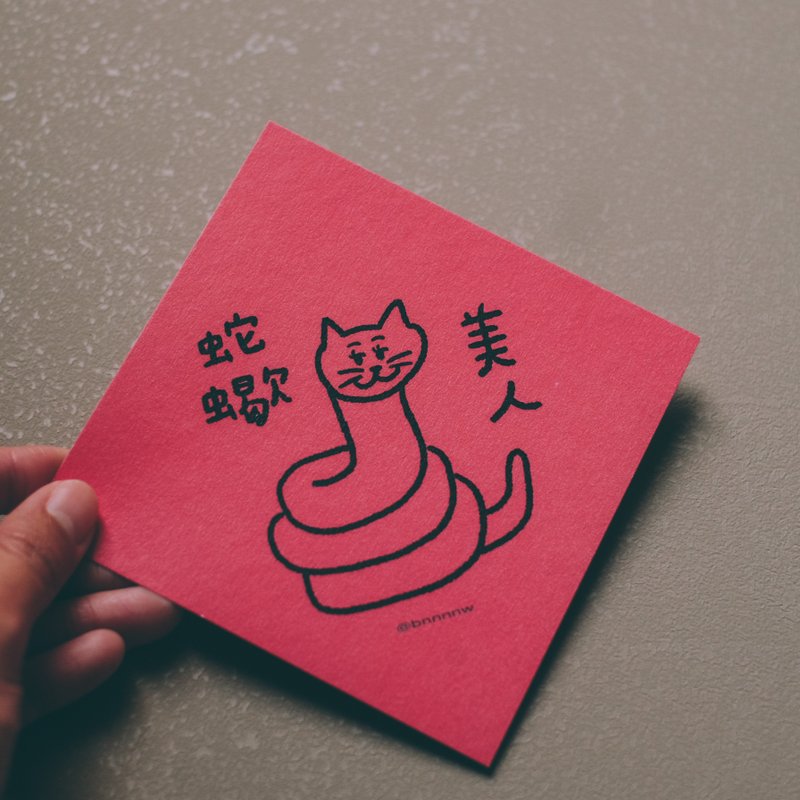 蛇蠍
美人
@bnnnnw